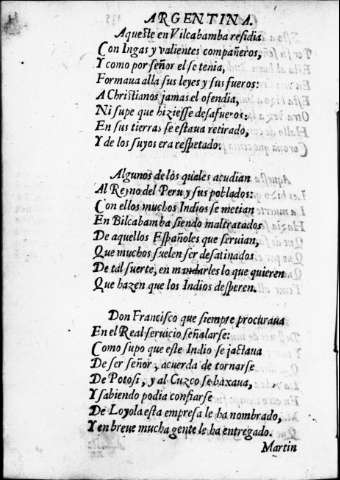 ARGENTINA.
Aqueste en Vilcabamba residia
Con Ingas y valientes compañeros,
Y como por señor el se tenia,
Formaua alla sus leyes y sus fueros:
A Christianos jamas el ofendia,
Ni supe que hiziesse desafueros:
En sus tierras se estaua retirado,
Y de los suyos era respetado.
Algunos de los quales acudian
Al Reyno del Peru y sus poblados:
Con ellos muchos Indios se metian
En Bilcabamba siendo maltratados
De aquellos Españoles que seruian,
Que muchos suelen ser desatinados
De tal suerte, en mandarles lo que quieren
Que hazen que los Indios desperen.
Don Francisco que siempre procuraua
En el Real seruicio señalarse:
Como supo que este Indio se jactaua
De ser señor, acuerda de tornarse
De Potosi, y al Cuzco se baxaua,
Y sabiendo podia confiarse
De Loyola esta empresa le ha nombrado,
Y en breue mucha gente le ha entregado.
Martin